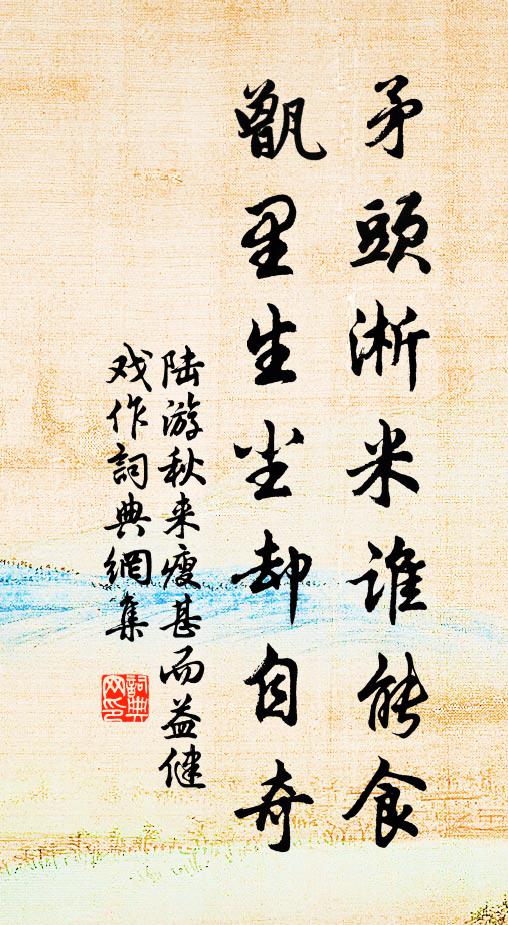 矛頭淅米誰能食
甑里生尘却自奇
陆游秋来瘦甚而益健
戏作詞典網集
詞典
网印